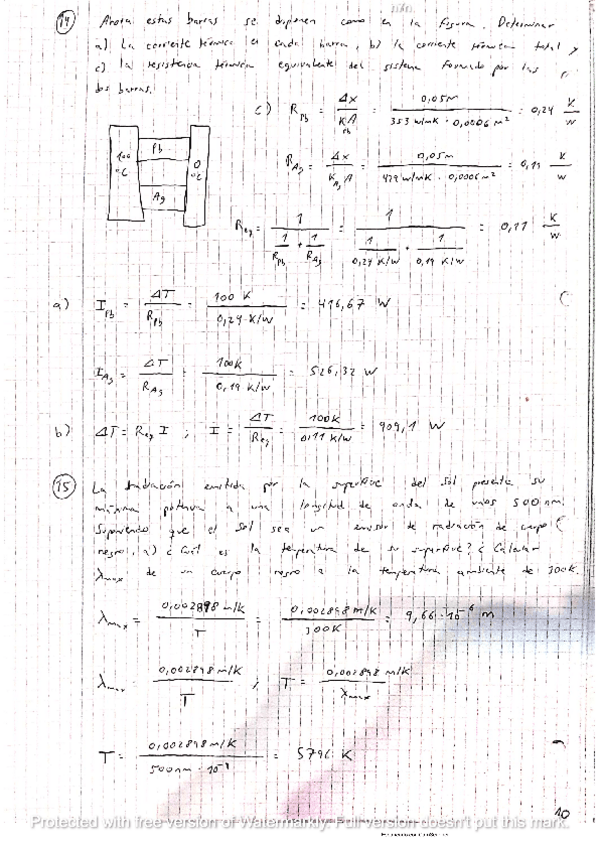 14 Ahora estas barras se disponen como en la figura. Determinar
a) La corriente térmica en cada barra, b) la corriente térmica total y
c) la resistencia térmica equivalente del sistema formado por las
dos barras.
c) R_Pb = Δx / K_Pb A = 0,05 m / 353 W/mK · 0,0006 m² = 0,24 K/W
100 °C Pb 0 °C Ag
R_Ag = Δx / K_Ag A = 0,05 m / 429 W/mK · 0,0006 m² = 0,19 K/W
R_eq = 1 / (1/R_Pb + 1/R_Ag) = 1 / (1/0,24 K/W + 1/0,19 K/W) = 0,11 K/W
a) I_Pb = ΔT / R_Pb = 100 K / 0,24 K/W = 416,67 W
I_Ag = ΔT / R_Ag = 100K / 0,19 K/W = 526,32 W
b) ΔT = R_eq I ; I = ΔT / R_eq = 100K / 0,11 K/W = 909,1 W
15 La radiación emitida por la superficie del Sol presenta su
máxima potencia a una longitud de onda de unos 500 nm.
Suponiendo que el Sol sea un emisor de radiación de cuerpo
negro, a) ¿Cuál es la temperatura de su superficie? ¿ Calcular
λmax de un cuerpo negro a la temperatura ambiente de 300K.
λmax = 0,002898 m/K / T = 0,002898 m/K / 300K = 9,66·10⁻⁶ m
λmax = 0,002898 m/K / T ; T = 0,002898 m/K / λmax
T = 0,002898 m/K / 500nm · 10⁻⁹ = 5796 K
10
Protected with free version of Watermarkly. Full version doesn't put this mark.